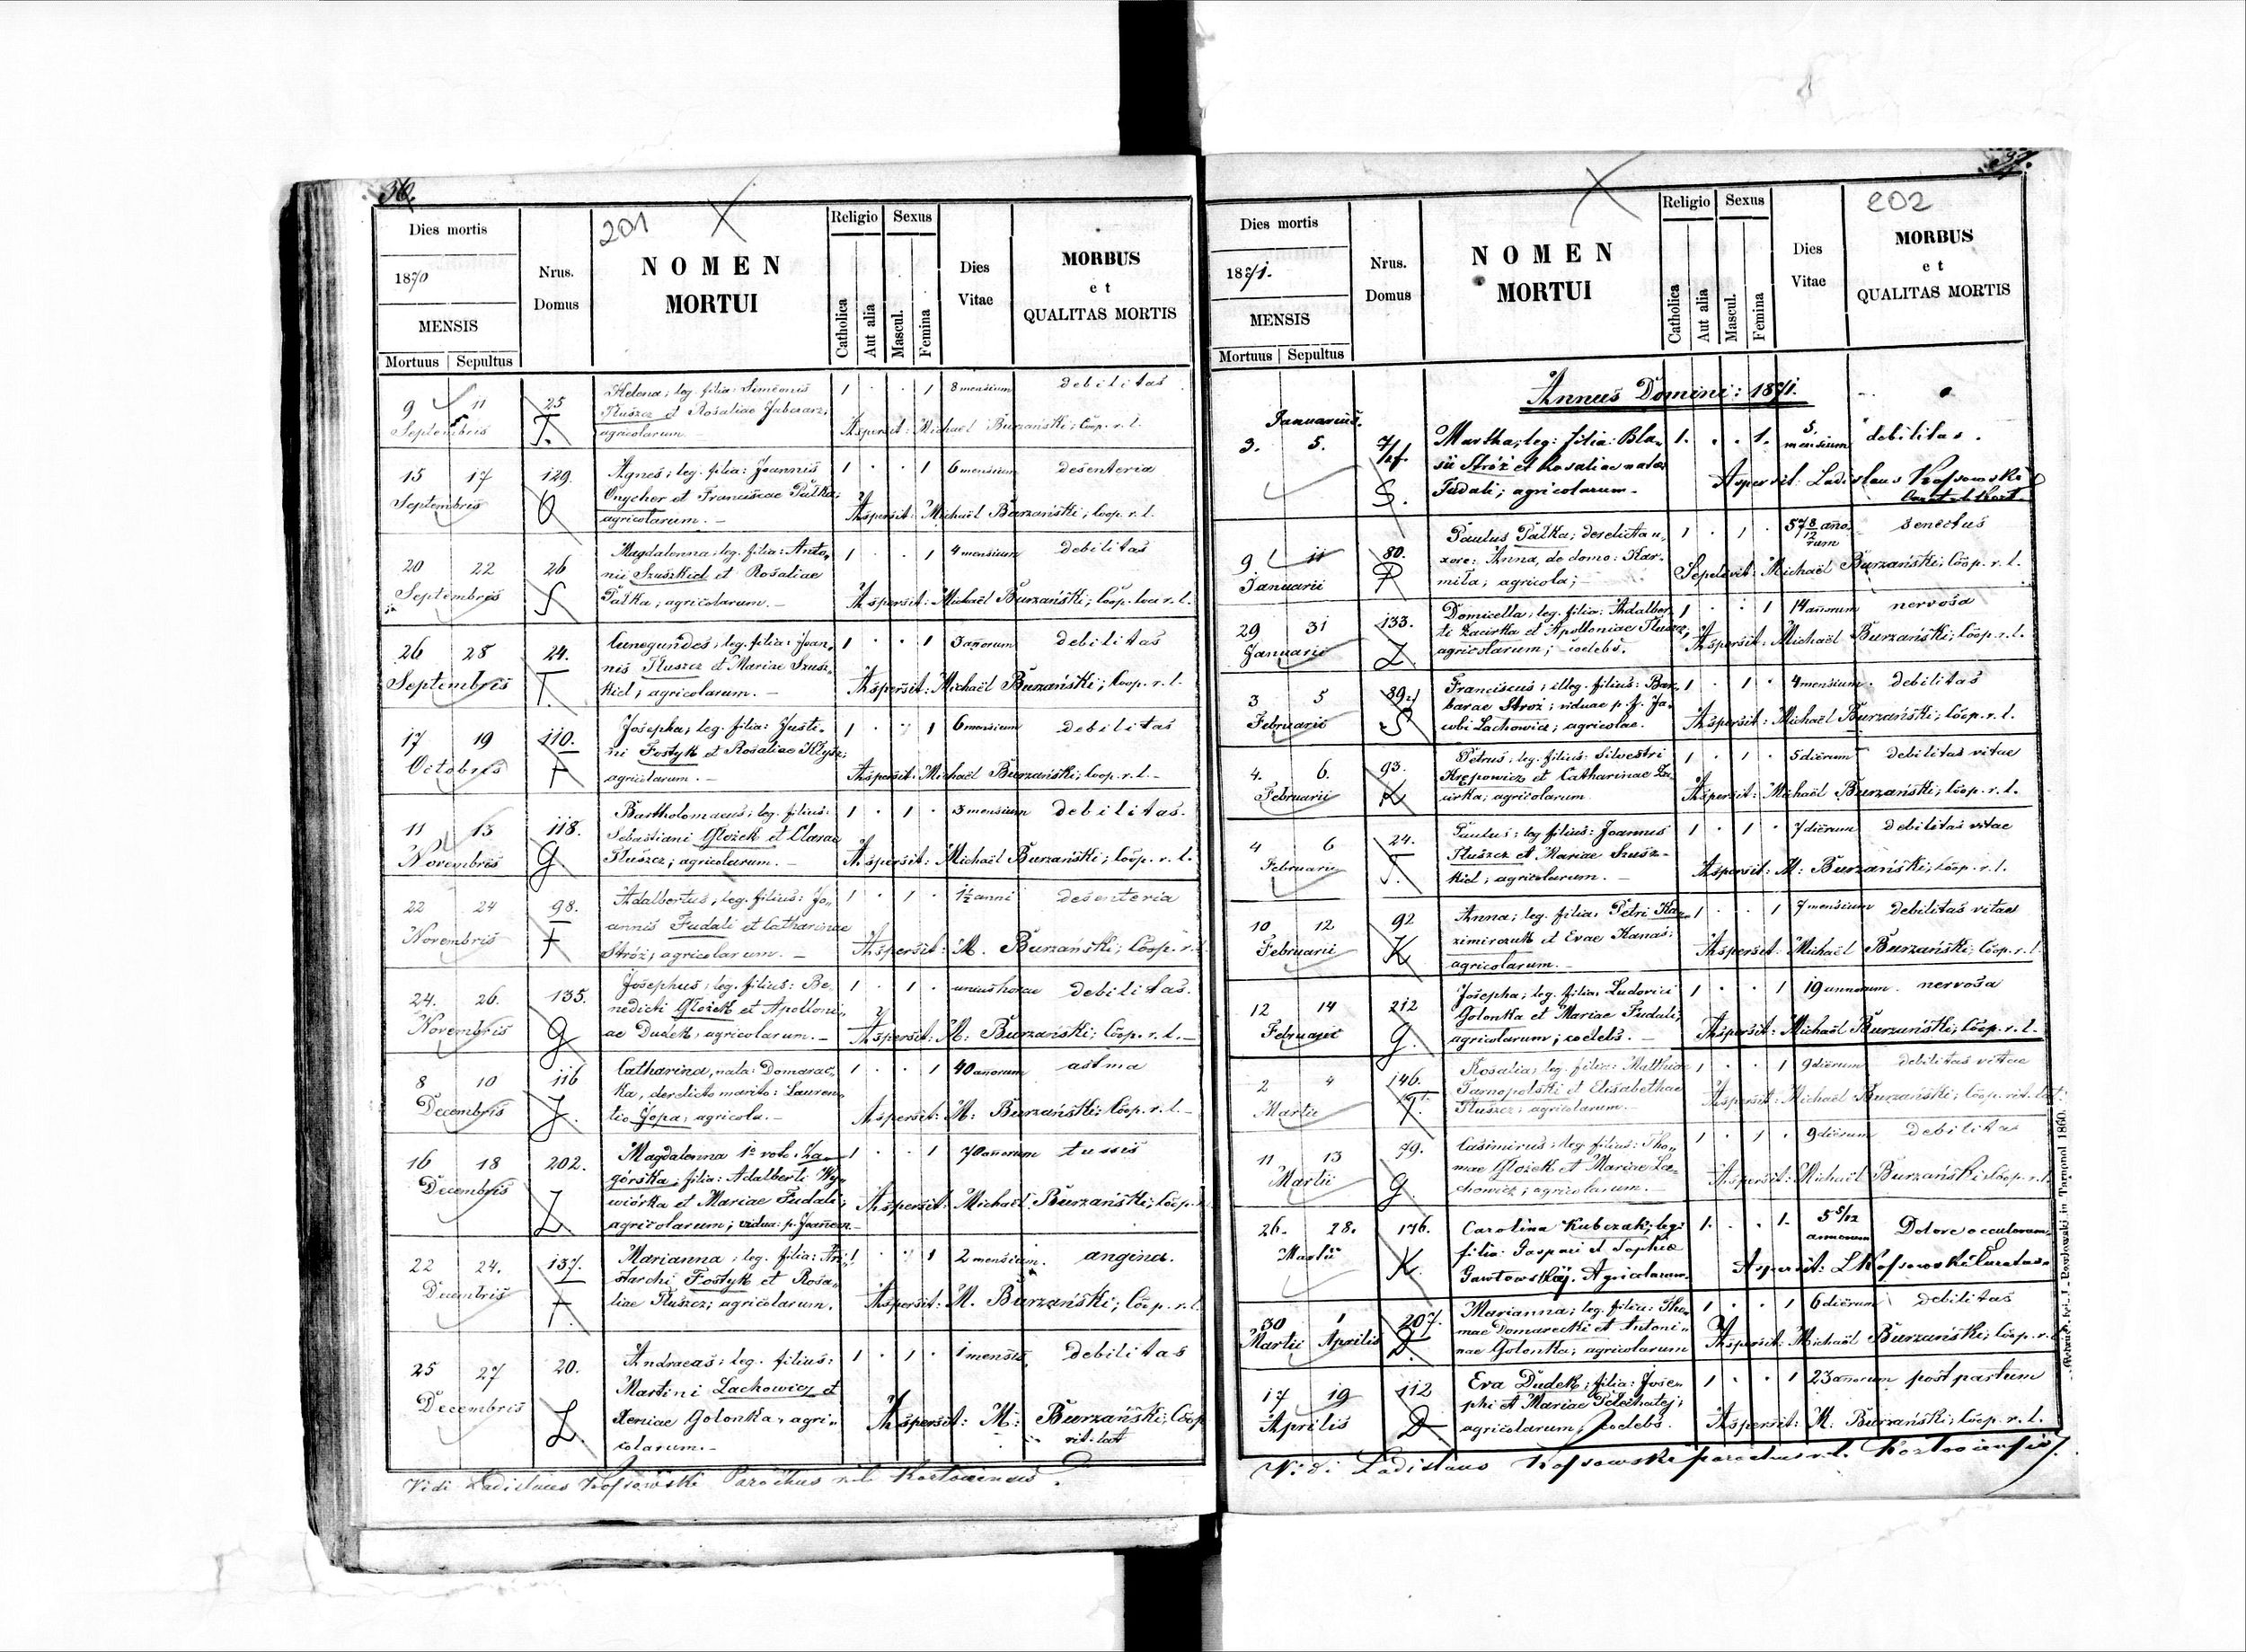 36.
201
Dies mortis
1870
MENSIS
Mortuus | Sepultus
Nrus.
Domus
NOMEN
MORTUI
Religio
Catholica
Aut alia
Sexus
Mascul.
Femina
Dies
Vitae
MORBUS
et
QUALITAS MORTIS
9 11 25 Helena; leg. filia: Simeonis 1 . . 1 8 mensium debilitas
Septembris T. Tłuszcz et Rosaliae
agricolarum. — Aspersit: Michaël Burzański; Coop. r. l.
15 17 129. Agnes; leg. filia: Joannis 1 . . 1 6 mensium desenteria
Septembris O Onycher et Franciscae Pałka;
agricolarum. — Aspersit: Michaël Burzański; Coop. r. l.
20 22 26 Magdalenna; leg. filia: Anto„ 1 . . 1 4 mensium debilitas
Septembris S nii Szuszkid et Rosaliae
Pałka; agricolarum. — Aspersit: Michaël Burzański; Coop. loci r. l.
26 28 24. Cunegundes; leg. filia: Joan„ 1 . . 1 3 anorum debilitas
Septembris T. nis Tłuszcz et Mariae Szusz„
kid; agricolarum. — Aspersit: Michaël Burzański; Coop. r. l.
17 19 110. Josepha; leg. filia: Justi„ 1 . . 1 6 mensium debilitas
Octobris F ni Fostyk et Rosaliae Kłysz;
agricolarum. — Aspersit: Michaël Burzański; Coop. r. l. —
11 13 118. Bartholomaeus; leg. filius: 1 . 1 . 3 mensium debilitas.
Novembris G Sebastiani Głożek et Clarae
Tłuszcz; agricolarum. — Aspersit: Michaël Burzański; Coop. r. l.
22 24 98. Adalbertus; leg. filius: Jo„ 1 . 1 . 1½ anni desenteria
Novembris F annis Fudali et Catharinae
Stróż; agricolarum. — Aspersit: M. Burzański; Coop. r.
24. 26. 135. Josephus; leg. filius: Be„ 1 . 1 . unius horae debilitas.
Novembris G nedicti Głożek et Apolloni„
ae Dudek, agricolarum. — Aspersit: M: Burzański; Coop. r. l. —
8 10 116 Catharina, nata: Domarac„ 1 . . 1 40 anorum astma
Decembris J. ka, derelicto marito: Lauren„
tio Jopa; agricola. — Aspersit: M: Burzański; Coop. r. l. —
16 18 202. Magdalenna 1º voto: Za„ 1 . . 1 70 anorum tussis
Decembris Z górska, filia: Adalberti Wy„
wiórka et Mariae Fudali; Aspersit: Michaël Burzański; Coop. r.
agricolarum; vidua: p.
22 24. 137. Marianna; leg. filia: Ari„ 1 . . 1 2 mensium. angina.
Decembris F. starchi Fostyk et Rosa„
liae Tłuszcz; agricolarum. Aspersit: M. Burzański; Coop. r. l.
25 27 20. Andraeas; leg. filius: 1 . 1 . 1 mensis, debilitas
Decembris L. Martini Lachowicz et
Xeniae Golonka, agri„ Aspersit: M: Burzański; Coop
colarum. — rit. lat
Vidi Ladislaus Kossowski Parochus r. l.
37.
202
Dies mortis
1871.
MENSIS
Mortuus | Sepultus
Nrus.
Domus
NOMEN
MORTUI
Religio
Catholica
Aut alia
Sexus
Mascul.
Femina
Dies
Vitae
MORBUS
et
QUALITAS MORTIS
Annus Domini: 1871.
Januarius.
3. 5. Martha; leg: filia: Bla„ 1. . . 1. 5. mensium debilitas.
S. sii Stróż et Rosaliae nata Aspersit: Ladislaus Kossowski
Fudali; agricolarum —
9. 11 80. Paulus Pałka; derelicta u„ 1 . 1 . 57 8/12 anorum senectus
Januarii P xore: Anna, de domo: Kar„ Sepelivit: Michaël Burzański; Coop. r. l.
mita; agricola; —
29 31 133. Domicella; leg. filia: Adalber„ 1 . . 1 14 annorum nervosa
Januarii Z. ti Zacirka et Apolloniae Tłuszcz; Aspersit: Michaël Burzański; Coop. r. l.
agricolarum; coelebs.
3 5 89. Franciscus; illeg. filius: Bar„ 1 . 1 . 4 mensium debilitas
Februarii S barae Stróż; viduae p. f. Ja„
cobi Lachowicz; agricolae. Aspersit: Michaël Burzański; Coop. r. l.
4. 6. 93. Petrus; leg. filius: Silvestri 1 . 1 . 5 dierum debilitas vitae
Februarii K Krępowicz et Catharinae Za„
cirka; agricolarum. Aspersit: Michaël Burzański; Coop. r. l.
4 6 24. Paulus; leg filius: Joannis 1 . 1 . 7 dierum debilitas vitae
Februarii T. Tłuszcz et Mariae Szusz„
kid; agricolarum. — Aspersit: M: Burzański; Coop. r. l.
10 12 92 Anna; leg. filia: Petri Ka„ 1 . . 1 7 mensium debilitas vitae
Februarii K zimirczuk et Evae Kanas; Aspersit: Michaël Burzański; Coop. r. l.
agricolarum. —
12 14 212 Josepha; leg. filia: Ludovici 1 . . 1 19 annorum. nervosa
Februarii G. Golonka et Mariae Fudali; Aspersit: Michaël Burzański; Coop. r. l.
agricolarum; coelebs. —
2 4 146. Rosalia; leg. filia: Mathiae 1 . . 1 9 dierum debilitas vitae
Martii T. Tarnopolski et Elisabethae Aspersit: Michaël Burzański; Coop. rit. lat:
Tłuszcz; agricolarum. —
11 13 79. Casimirus; leg. filius: Tho„ 1 . 1 . 9 dierum debilitas
Martii G. mae Głożek et Mariae La„ Aspersit: Michaël Burzański; Coop. r. l.
chowicz; agricolarum. —
26. 28. 176. Carolina Kubczak; leg: 1. . . 1. 5 5/12 annorum Dolore occulorum
Martii K. filia: Gaspari et Sophie Aspersit: L Kossowski Curatus.
Gawłowskiej. Agricolarum.
30 1 207. Marianna; leg. filia: Tho„ 1 . . 1 6 dierum debilitas
Martii Aprilis D. mae Domarecki et Antoni„ Aspersit: Michaël Burzański; Coop. r.
nae Golonka; agricolarum
17 19 112 Eva Dudek; filia: Jose„ 1 . . 1 23 anorum post partum
Aprilis D phi et Mariae Pelechatej; Aspersit: M. Burzański; Coop. r. l.
agricolarum; coelebs.
Vidi Ladislaus Kossowski parochus r. l.
J. Pawłowski in Tarnopol 1860.